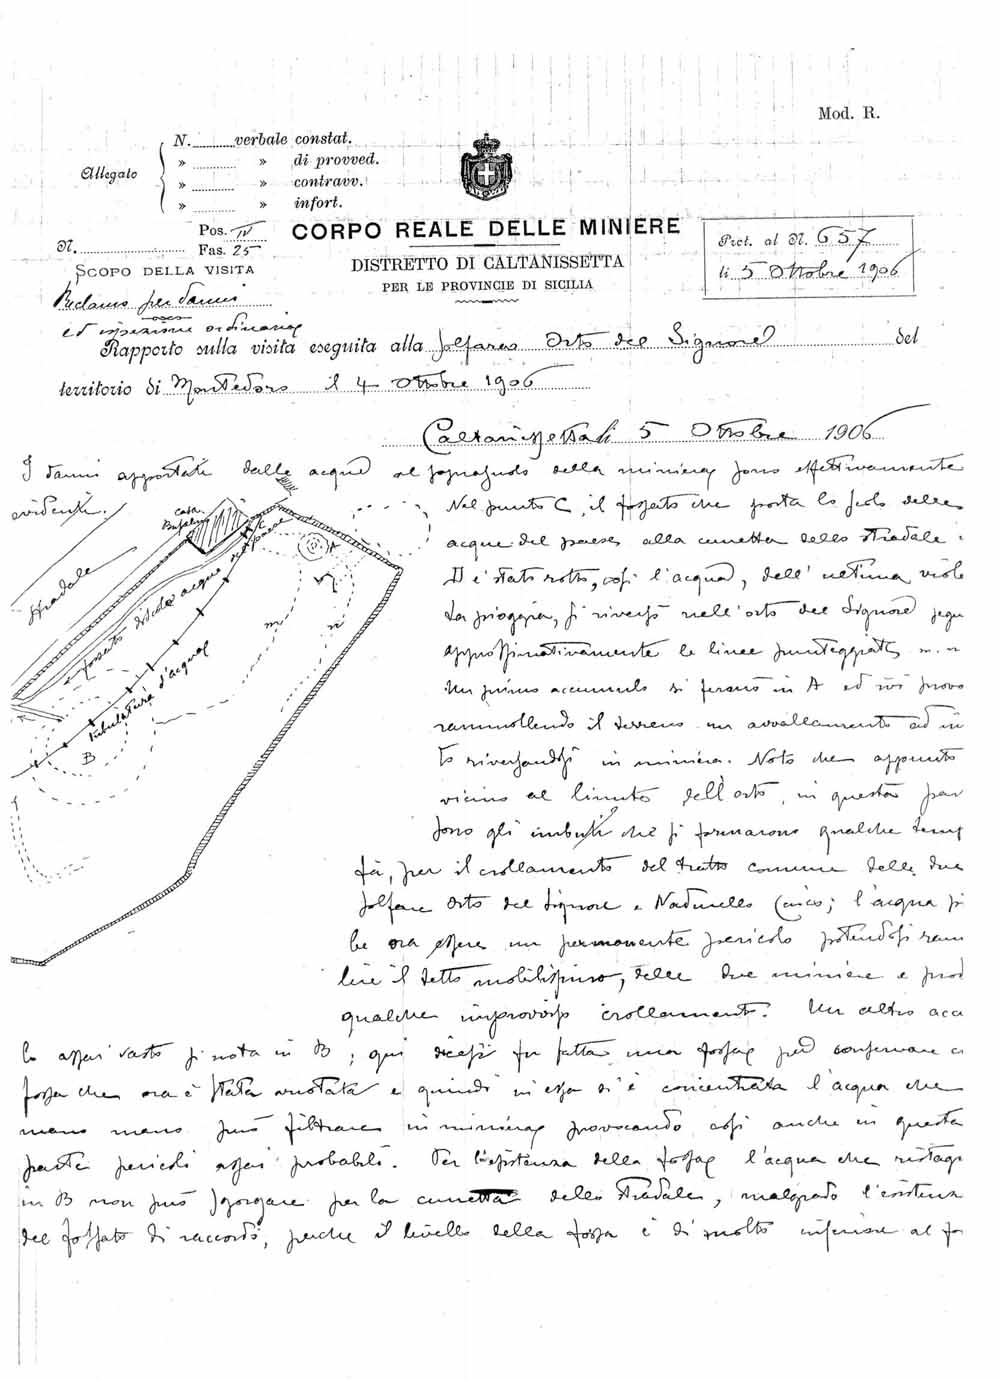 Mod. R.
Allegato
N. ........ verbale constat.
» ........ » di provved.
» ........ » contravv.
» ........ » infort.
Pos. IV
N. ........ Fas. 25
SCOPO DELLA VISITA
Reclamo per danni
ed ispezione ordinaria
CORPO REALE DELLE MINIERE
DISTRETTO DI CALTANISSETTA
PER LE PROVINCIE DI SICILIA
Prot. al N. 657
li 5 Ottobre 1906
Rapporto sulla visita eseguita alla solfara Orto del Signore del
territorio di Montedoro il 4 Ottobre 1906
Caltanissetta li 5 Ottobre 1906
I danni apportati dalle acque al soprasuolo della miniera sono effettivamente
evidenti.
Nel punto C, il fossato che porta lo scolo delle
acque del paese alla cunetta dello stradale
è stato rotto, così l'acqua, dell'ultima viole
ta pioggia, si riversò nell'orto del Signore segu
approssimativamente le linee punteggiate m. n
Un primo accumulo si formò in A ed ivi provo
rammollendo il terreno un avvallamento ed in
to riversandosi in miniera. Noto che appunto
vicino al limite dell'orto, in questa par
sono gli imbuti che si formarono qualche temp
fa, per il crollamento del tratto comune delle due
solfare Orto del Signore e Nadurello (; l'acqua p
be ora essere un permanente pericolo potendosi ram
lire il tetto mobilissimo, delle due miniere e prod
qualche improvviso crollamento. Un altro accu
lo assai vasto si nota in B; qui dicesi fu fatta una fossa per conservare a
fossa che ora è stata vuotata e quindi in essa si è concentrata l'acqua che
mano mano può filtrare in miniera provocando così anche in questa
parte pericoli assai probabili. Per l'esistenza della fossa l'acqua che ristagn
in B non può sgorgare per la cunetta dello stradale, malgrado l'esistenza
del fossato di raccordo, perche il livello della fossa è di molto inferiore al fo
casa
Stradale
fossato di scolo acque del paese
tubulatura d'acqua
A
B
C
m
n